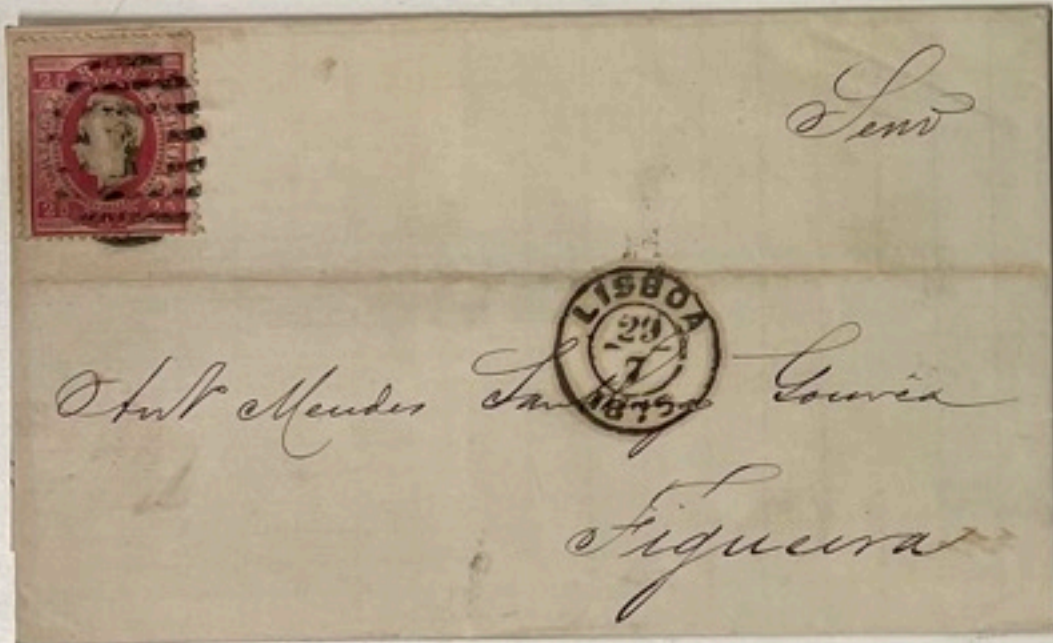 25
25
Senr
LISBOA
29
7
1875
Antº Mendes Gouvêa
Figueira